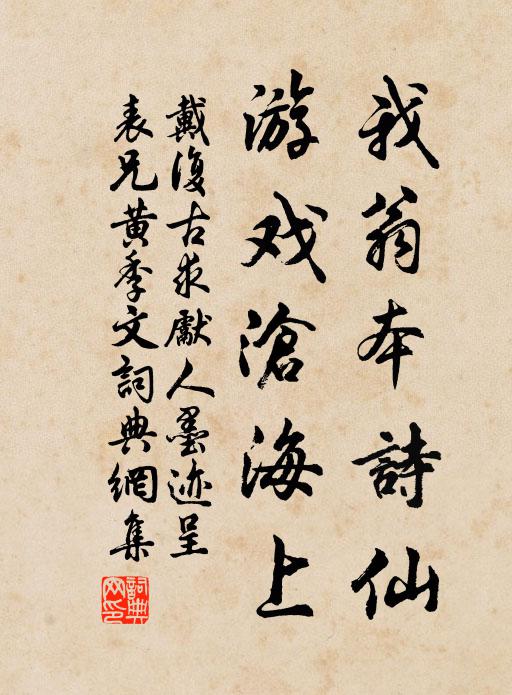 我翁本詩仙
游戏滄海上
戴復古求獻人墨迹呈
表兄黄季文詞典網集
詞典网印